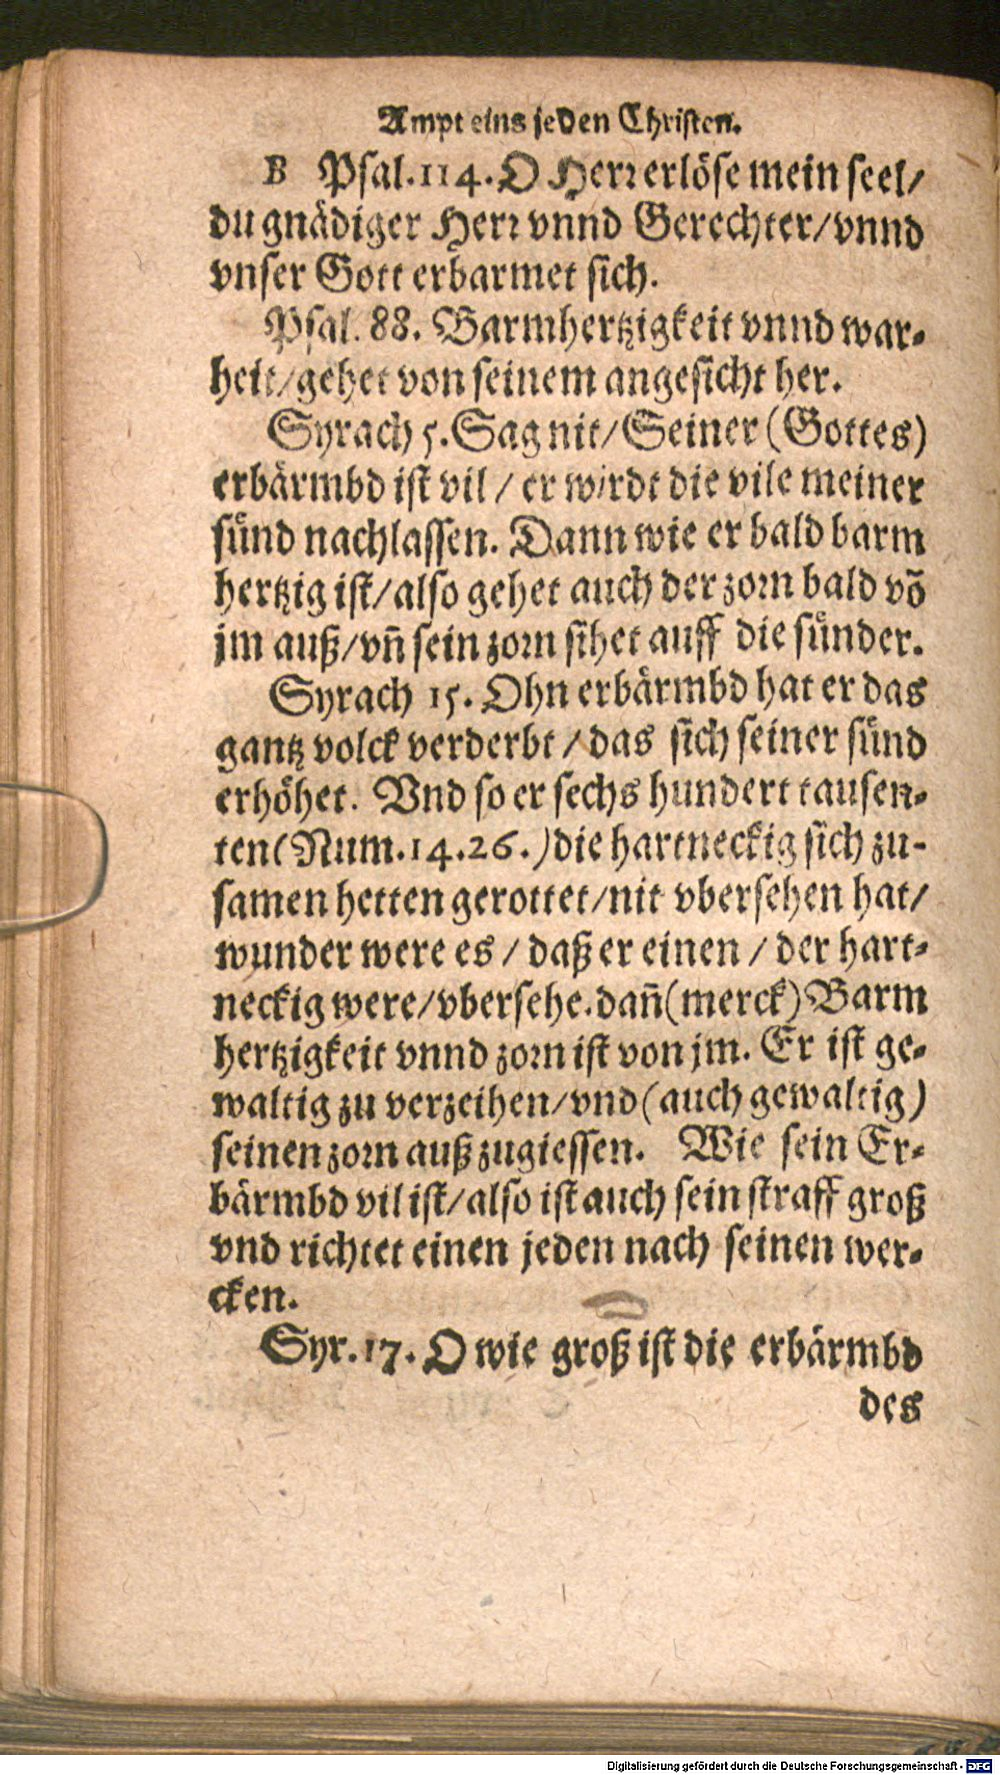 Ampt eins jeden Christen.
B Psal. 114. O Herr erlöse mein seel/
du gnädiger Herr vnnd Gerechter/vnnd
vnser Gott erbarmet sich.
Psal. 88. Barmhertzigkeit vnnd war-
heit/gehet von seinem angesicht her.
Syrach 5. Sag nit/Seiner (Gottes)
erbärmbd ist vil / er wirdt die vile meiner
sünd nachlassen. Dann wie er bald barm
hertzig ist/also gehet auch der zorn bald võ
jm auß/vñ sein zorn sihet auff die sünder.
Syrach 15. Ohn erbärmbd hat er das
gantz volck verderbt / das sich seiner sünd
erhöhet. Vnd so er sechs hundert tausen-
ten (Num. 14. 26.) die hartneckig sich zu-
samen hetten gerottet/nit vbersehen hat/
wunder were es / daß er einen / der hart-
neckig were/vbersehe. dañ (merck) Barm
hertzigkeit vnnd zorn ist von jm. Er ist ge-
waltig zu verzeihen/vnd (auch gewaltig)
seinen zorn auß zugiessen. Wie sein Er-
bärmbd vil ist/also ist auch sein straff groß
vnd richtet einen jeden nach seinen wer-
cken.
Syr. 17. O wie groß ist die erbärmbd
des
Digitalisierung gefördert durch die Deutsche Forschungsgemeinschaft - DFG